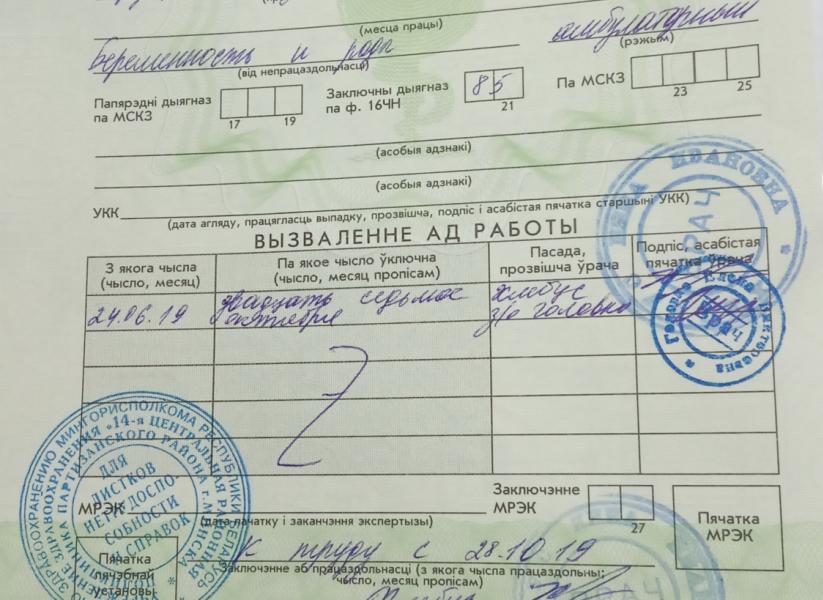 (месца працы)
Беременность и роды амбулаторный
(від непрацаздольнасці) (рэжым)
Папярэдні дыягназ
па МСКЗ
17 19
Заключны дыягназ
па ф. 16ЧН
85
21
Па МСКЗ
23 25
(асобыя адзнакі)
(асобыя адзнакі)
УКК
(дата агляду, працягласць выпадку, прозвішча, подпіс і асабістая пячатка старшыні УКК)
ВЫЗВАЛЕННЕ АД РАБОТЫ
З якога чысла
(чысло, месяц)
Па якое чысло ўключна
(чысло, месяц прописам)
Пасада,
прозвішча ўрача
Подпіс, асабістая
пячатка ўрача
24.06.19
двадцать седьмое
октября
з/о Головко
ИВАНОВНА
ВРАЧ
Елена Викторовна
Врач
МРЭК
(дата пачатку і заканчэння экспертызы)
Заключэнне
МРЭК
27
Пячатка
МРЭК
К труду с 28.10.19
Заключэнне аб працаздольнасці (з якога чысла працаздольны;
чысло, месяц прописам)
Пячатка
лячэбнай
установы
ЗДРАВООХРАНЕНИЮ МИНГОРИСПОЛКОМА РЕСПУБЛИКИ БЕЛАРУСЬ
ЗДРАВООХРАНЕНИЯ «14-я ЦЕНТРАЛЬНАЯ РАЙОННАЯ
ПОЛИКЛИНИКА ПАРТИЗАНСКОГО РАЙОНА г. МИНСКА
ДЛЯ
ЛИСТКОВ
НЕТРУДОСПО-
СОБНОСТИ
И СПРАВОК
ВРАЧ